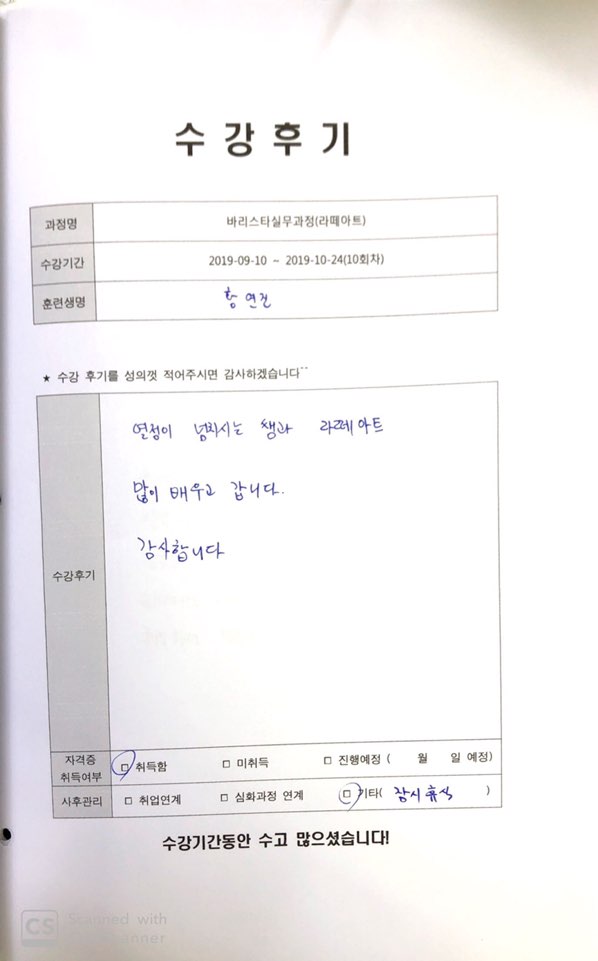 수 강 후 기
과정명 바리스타실무과정(라떼아트)
수강기간 2019-09-10 ~ 2019-10-24(10회차)
훈련생명 황연진
★ 수강 후기를 성의껏 적어주시면 감사하겠습니다^^
수강후기
열정이 넘치시는 쌤과 라떼아트
많이 배우고 갑니다.
감사합니다
자격증 취득여부 □ 취득함 □ 미취득 □ 진행예정 ( 월 일 예정)
사후관리 □ 취업연계 □ 심화과정 연계 □ 기타( 잠시휴식 )
수강기간동안 수고 많으셨습니다!
CS Scanned with